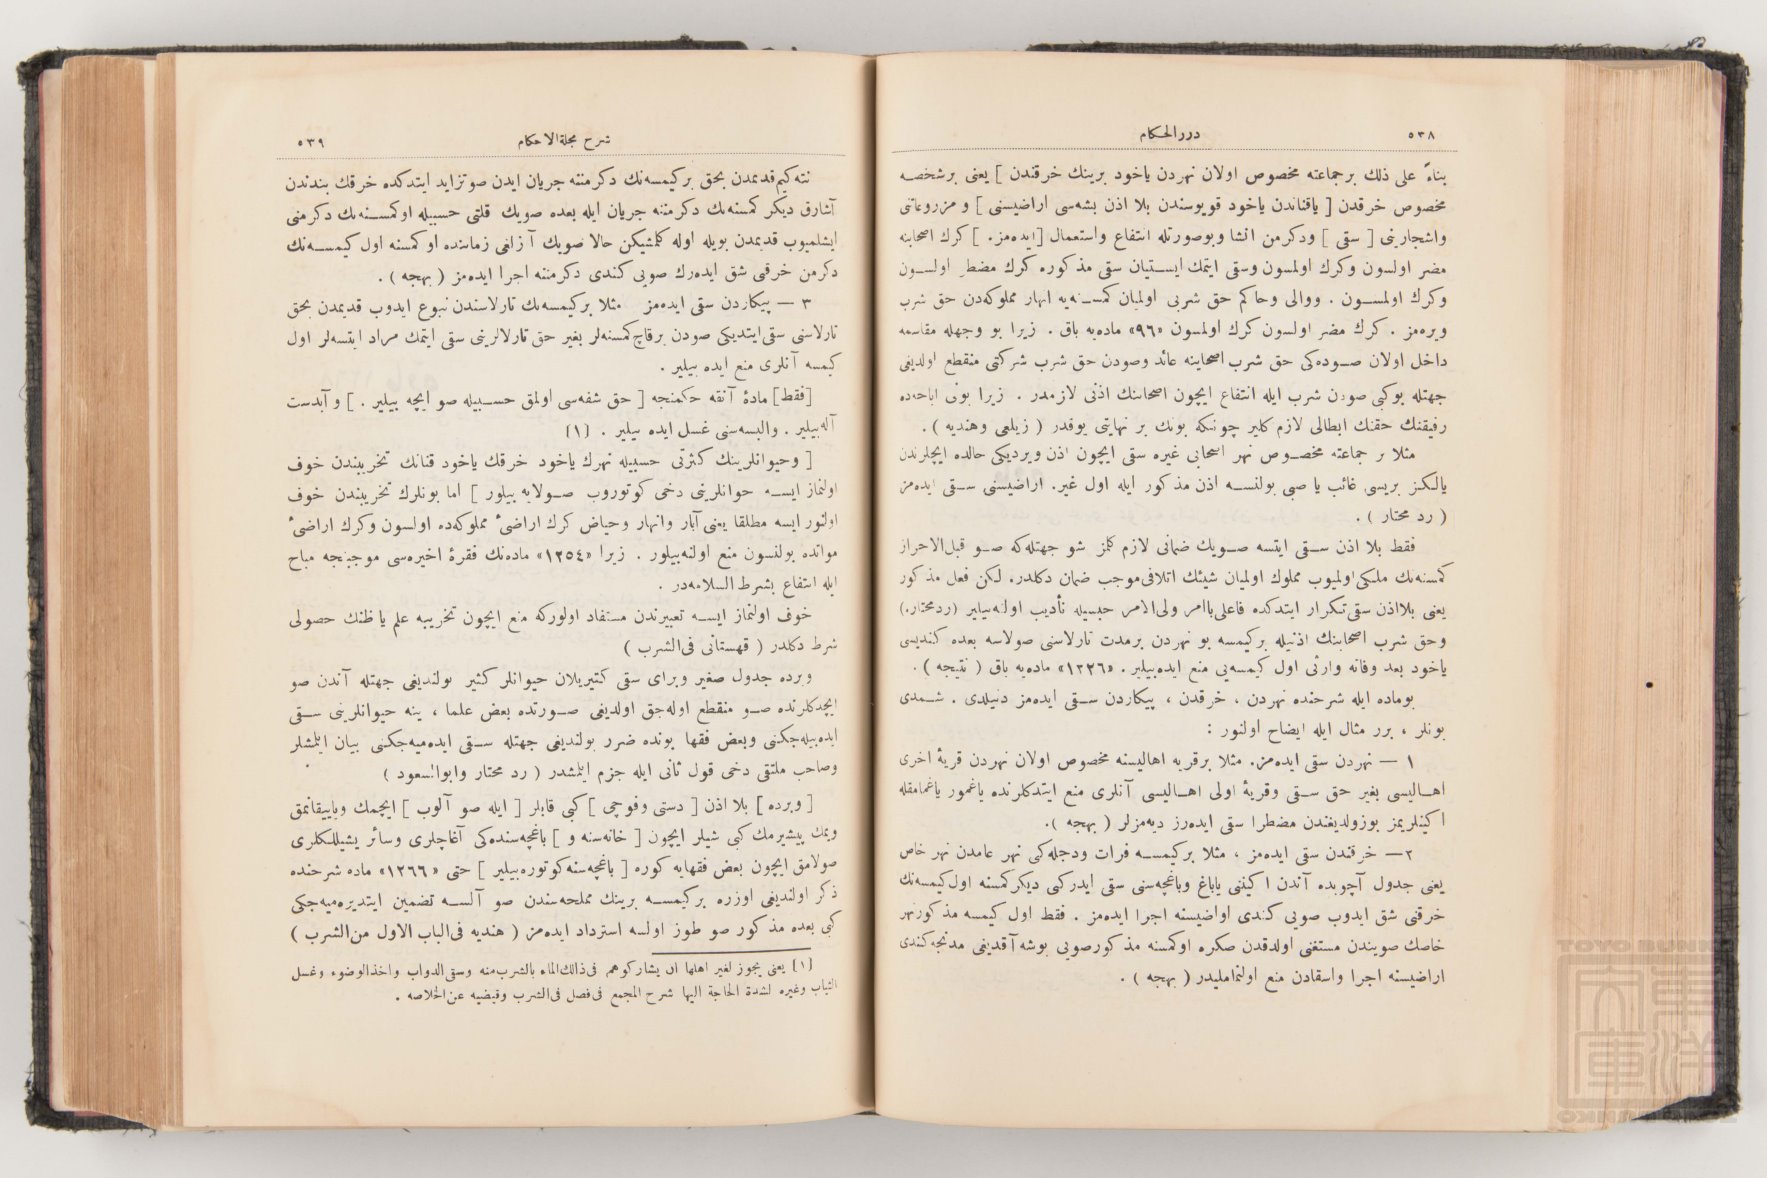 ٥٣٨
دررالحكام
بناءً على ذلك برجماعته مخصوص اولان نهردن ياخود برينك خرقندن ] يعنى برشخصه
مخصوص خرقدن [ ياقناندن ياخود قويوسندن بلا اذن بشه‌سى اراضيسنى ] و مزروعاتى
واشجارينى [ سقى ] ودكرمن انشا وبوصورتله انتفاع واستعمال [ايده‌مز. ] كرك اصحابنه
مضر اولسون وكرك اولمسون وسقى ايتمك ايستيان سقى مذكوره كرك مضطر اولسون
وكرك اولمسون . ووالى وحاكم حق شربى اولميان كمسنه‌يه انهار مملوكه‌دن حق شرب
ويره‌مز . كرك مضر اولسون كرك اولمسون «٩٦» ماده‌يه باق . زيرا بو وجهله مقاسمه
داخل اولان صوده‌كى حق شرب اصحابنه عائد وصودن حق شرب شركتى منقطع اولديغى
جهتله بوكبى صودن شرب ايله انتفاع ايچون اصحابنك اذنى لازمدر . زيرا بونى اباحه‌ده
رفيقنك حقنك ابطالى لازم كلير چونكه بونك بر نهايتى يوقدر ( زيلعى وهنديه ) .
مثلا بر جماعته مخصوص نهر اصحابى غيره سقى ايچون اذن ويرديكى حالده ايچلرندن
يالكز بريسى غائب يا صبى بولنسه اذن مذكور ايله اول غير. اراضيسنى سقى ايده‌مز
( رد محتار ) .
فقط بلا اذن سقى ايتسه صويك ضمانى لازم كلمز شو جهتله‌كه صو قبل‌الاحراز
كمسنه‌نك ملكى‌اولميوب مملوك اولميان شيئك اتلافى‌موجب ضمان دكلدر. لكن فعل مذكور
يعنى بلااذن سقى‌تكرار ايتدكده فاعلى‌باامر ولى‌الامر حبسيله تأديب اولنه‌بيلير (ردمحتار.)
وحق شرب اصحابنك اذنيله بركيمسه بو نهردن برمدت تارلاسنى صولاسه بعده كنديسى
ياخود بعد وفاته وارثى اول كيمسه‌يى منع ايده‌بيلير . «١٢٢٦» ماده‌يه باق ( نتيجه ) .
بوماده ايله شرحنده نهردن ، خرقدن ، پيكاردن سقى ايده‌مز دنيلدى . شمدى
بونلر ، برر مثال ايله ايضاح اولنور :
١ — نهردن سقى ايده‌مز. مثلا برقريه اهاليسنه مخصوص اولان نهردن قرية اخرى
اهاليسى بغير حق سقى وقرية اولى اهاليسى آنلرى منع ايتدكلرنده ياغمور ياغمامقله
اكينلريمز بوزولديغندن مضطرا سقى ايده‌رز ديه‌مزلر ( بهجه ).
٢— خرقندن سقى ايده‌مز ، مثلا بركيمسه فرات ودجله‌كبى نهر عامدن نهر خاص
يعنى جدول آچوبده آندن اكينى ياباغ وباغچه‌سنى سقى ايدركى ديكركمسنه اول‌كيمسه‌نك
خرقنى شق ايدوب صويى كندى اواضيسنه اجرا ايده‌مز . فقط اول كيمسه مذكورنهر
خاصك صويندن مستغنى اولدقدن صكره اوكمسنه مذكورصويى بوشه‌آقديغى مدتجه‌كندى
اراضيسنه اجرا واسقادن منع اولنماملیدر ( بهجه ) .
شرح مجلة‌الاحكام
٥٣٩
نته‌كيم‌قديمدن بحق بركيمسه‌نك دكرمننه جريان ايدن صوتزايد ايتدكده خرقك بندندن
آشارق ديكر كمسنه‌نك دكرمننه جريان ايله بعده صويك قلتى حسبيله اوكمسنه‌نك دكرمنى
ايشلميوب قديمدن بويله اوله كلمشيكن حالا صويك آزلغى زماننده اوكمسنه اول كيمسه‌نك
دكرمن خرقنى شق ايده‌رك صويى كندى دكرمننه اجرا ايده‌مز ( بهجه ) .
٣ — پيكاردن سقى ايده‌مز مثلا بركيمسه‌نك تارلاسندن نبوع ايدوب قديمدن بحق
تارلاسنى سقى‌ايتديكى صودن برقاچ‌كمسنه‌لر بغير حق تارلالرينى سقى ايتمك مراد ايتسه‌لر اول
كيمسه آنلرى منع ايده بيلير .
[فقط] مادة آنفه حكمنجه [ حق شفه‌سى اولمق حسبيله صو ايچه بيلير . ] و آبدست
آله‌بيلير . والبسه‌سنى غسل ايده بيلير . (١)
[ وحيوانلرينك كثرتى حسبيله نهرك ياخود خرقك ياخود قنانك تخريبندن خوف
اولنماز ايسه حوانلرينى دخى كوتوروب صولايه بيلور ] اما بونلرك تخريبندن خوف
اولنور ايسه مطلقا يعنى آبار وانهار وحياض كرك اراضئ مملوكه‌ده اولسون وكرك اراضئ
مواتده بولنسون منع اولنه‌بيلور . زيرا «١٢٥٤» ماده‌نك فقرة اخيره‌سى موجبنجه مباح
ايله انتفاع بشرط السلامه‌در .
خوف اولنماز ايسه تعبيرندن مستفاد اولوركه منع ايچون تخريبه علم ياظنك حصولى
شرط دكلدر ( قهستانى فى‌الشرب )
وبرده جدول صغير وبراى سقى كتيريلان حيوانلر كثير بولنديغى جهتله آندن صو
ايچدكلرنده صو منقطع اوله‌جق اولديغى صورتده بعض علما ، ينه حيوانلرينى سقى
ايده‌بيله‌جكنى وبعض فقها بونده ضرر بولنديغى جهتله سقى ايده‌ميه‌جكنى بيان ايلمشلر
وصاحب ملتقى دخى قول ثانى ايله جزم ايلمشدر ( رد محتار وابوالسعود )
[ وبرده ] بلا اذن [ دستى وفوچى ] كبى قابلر [ ايله صو آلوب ] ايچمك وياييقانمق
ويمك پيشيرمك كبى شيلر ايچون [ خانه‌سنه و ] باغچه‌سنده‌كى آغاچلرى وسائر يشيللكلرى
صولامق ايچون بعض فقهايه كوره [ باغچه‌سنه‌كوتوره‌بيلير ] حتى «١٢٦٦» ماده شرحنده
ذكر اولنديغى اوزره بركيمسه برينك مملحه‌سندن صو آلسه تضمين ايتديره‌ميه‌جكى
كبى بعده مذكور صو طوز اولسه استرداد ايده‌مز ( هنديه فى‌الباب الاول من‌الشرب )
(١) يعنى يجوز لغير اهلها ان يشاركوهم فى‌ذالك‌الماء بالشرب‌منه وسقى‌الدواب واخذالوضوء وغسل
الثياب وغيره لشدة الحاجة اليها شرح المجمع فى‌فصل فى‌الشرب وفيضيه عن‌الخلاصه .
TOYO BUNKO